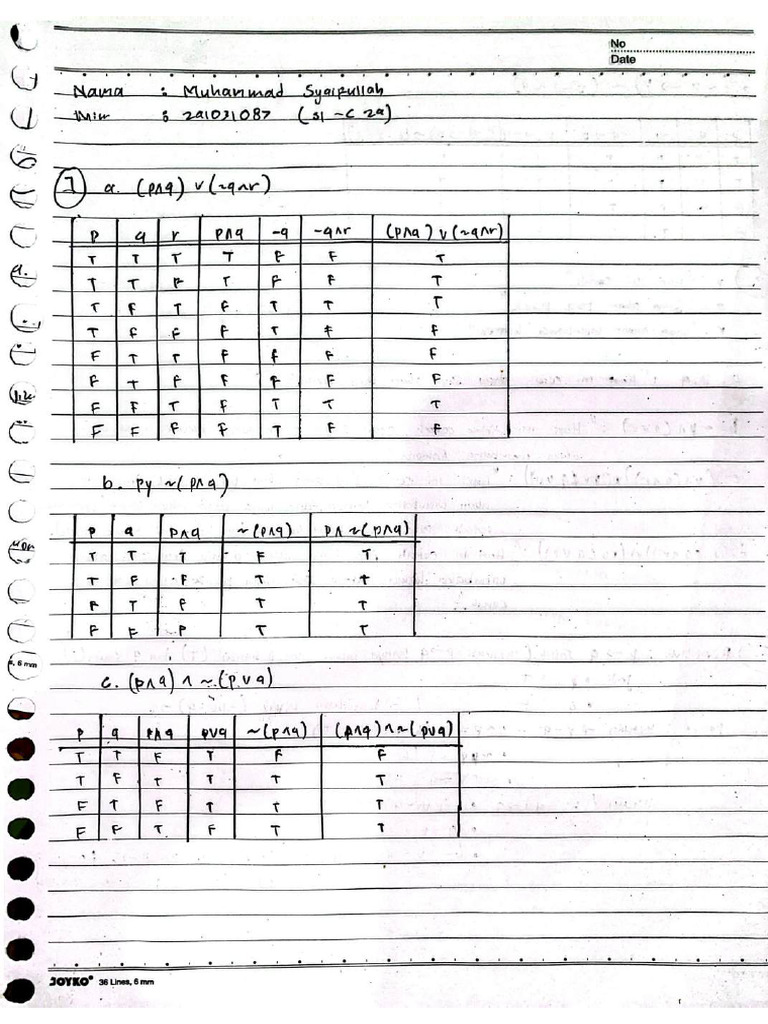 No
Date
Nama : Muhammad Syaifullah
Nim : 2A1031087 (SI-C 2a)
1 a. (p∧q) ∨ (~q∧r)
p q r p∧q -q -q∧r (p∧q) ∨ (~q∧r)
T T T T F F T
T T F T F F T
T F T F T T T
T F F F T F F
F T T F F F F
F T F F F F F
F F T F T T T
F F F F T F F
b. py ~(p∧q)
p q p∧q ~(p∧q) p∧~(p∧q)
T T T F T.
T F F T T
F T F T T
F F F T T
c. (p∧q) ∧ ~(p∨q)
p q p∧q p∨q ~(p∧q) (p∧q)∧~(p∨q)
T T F T F F
T F T T T T
F T F T T T
F F T F T T
JOYKO® 36 Lines, 6 mm